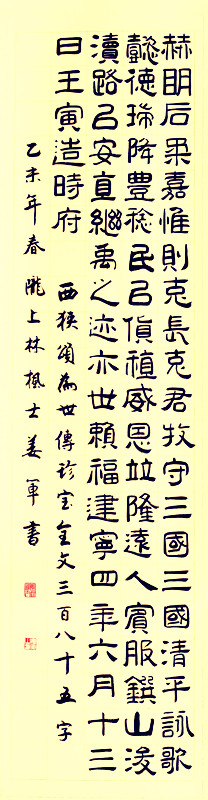 赫明后柔嘉惟則克長克君牧守三國三國清平詠歌
懿德瑞降豊稔民以貨稙威恩竝隆遠人賓服鐉山浚
瀆路以安直繼禹之迹亦世賴福建寧四年六月十三
日壬寅造時府
西狹頌為世傳珍宝全文三百八十五字
乙未年春隴上林楓士姜軍書